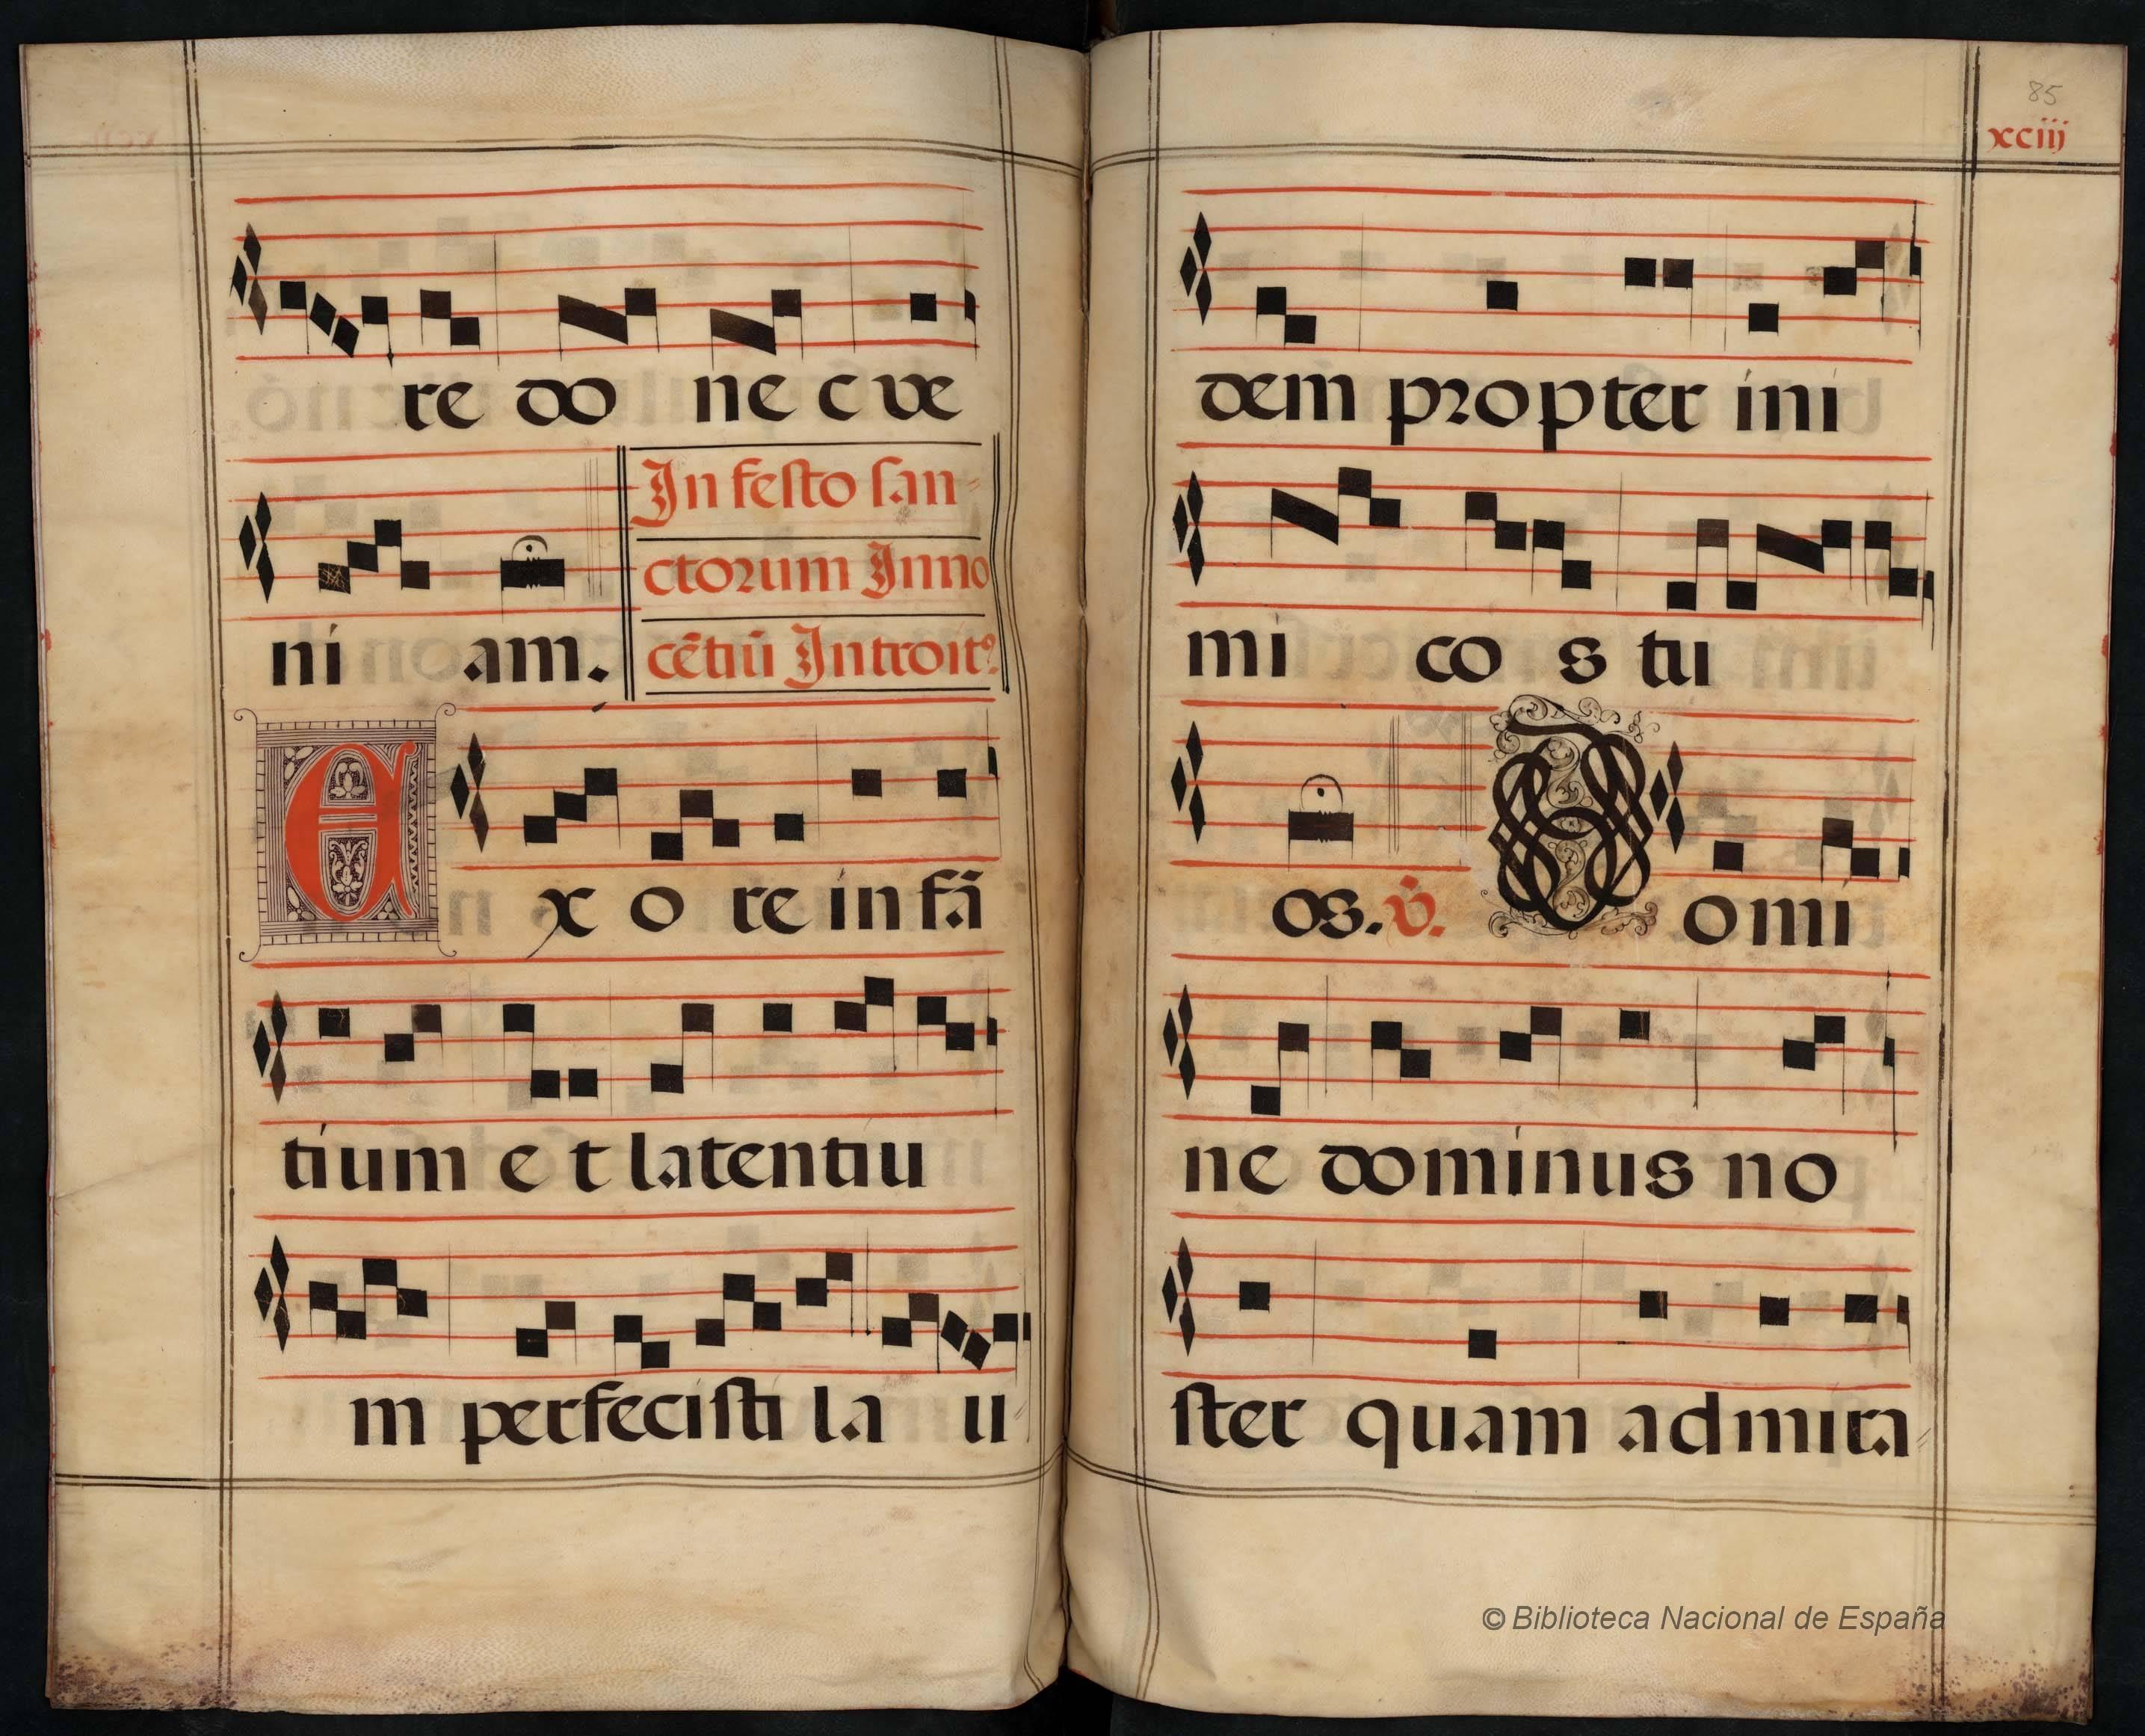 re do ne c ve
ni am.
In festo san-
ctorum Inno
cẽtiũ Introit⁹.
E x o re in fã
tium e t latentiu
m perfecisti la u-
85
xciij
dem propter ini
mi co s tu
os. ℣. D omi
ne dominus no
ster quam admira-
© Biblioteca Nacional de España